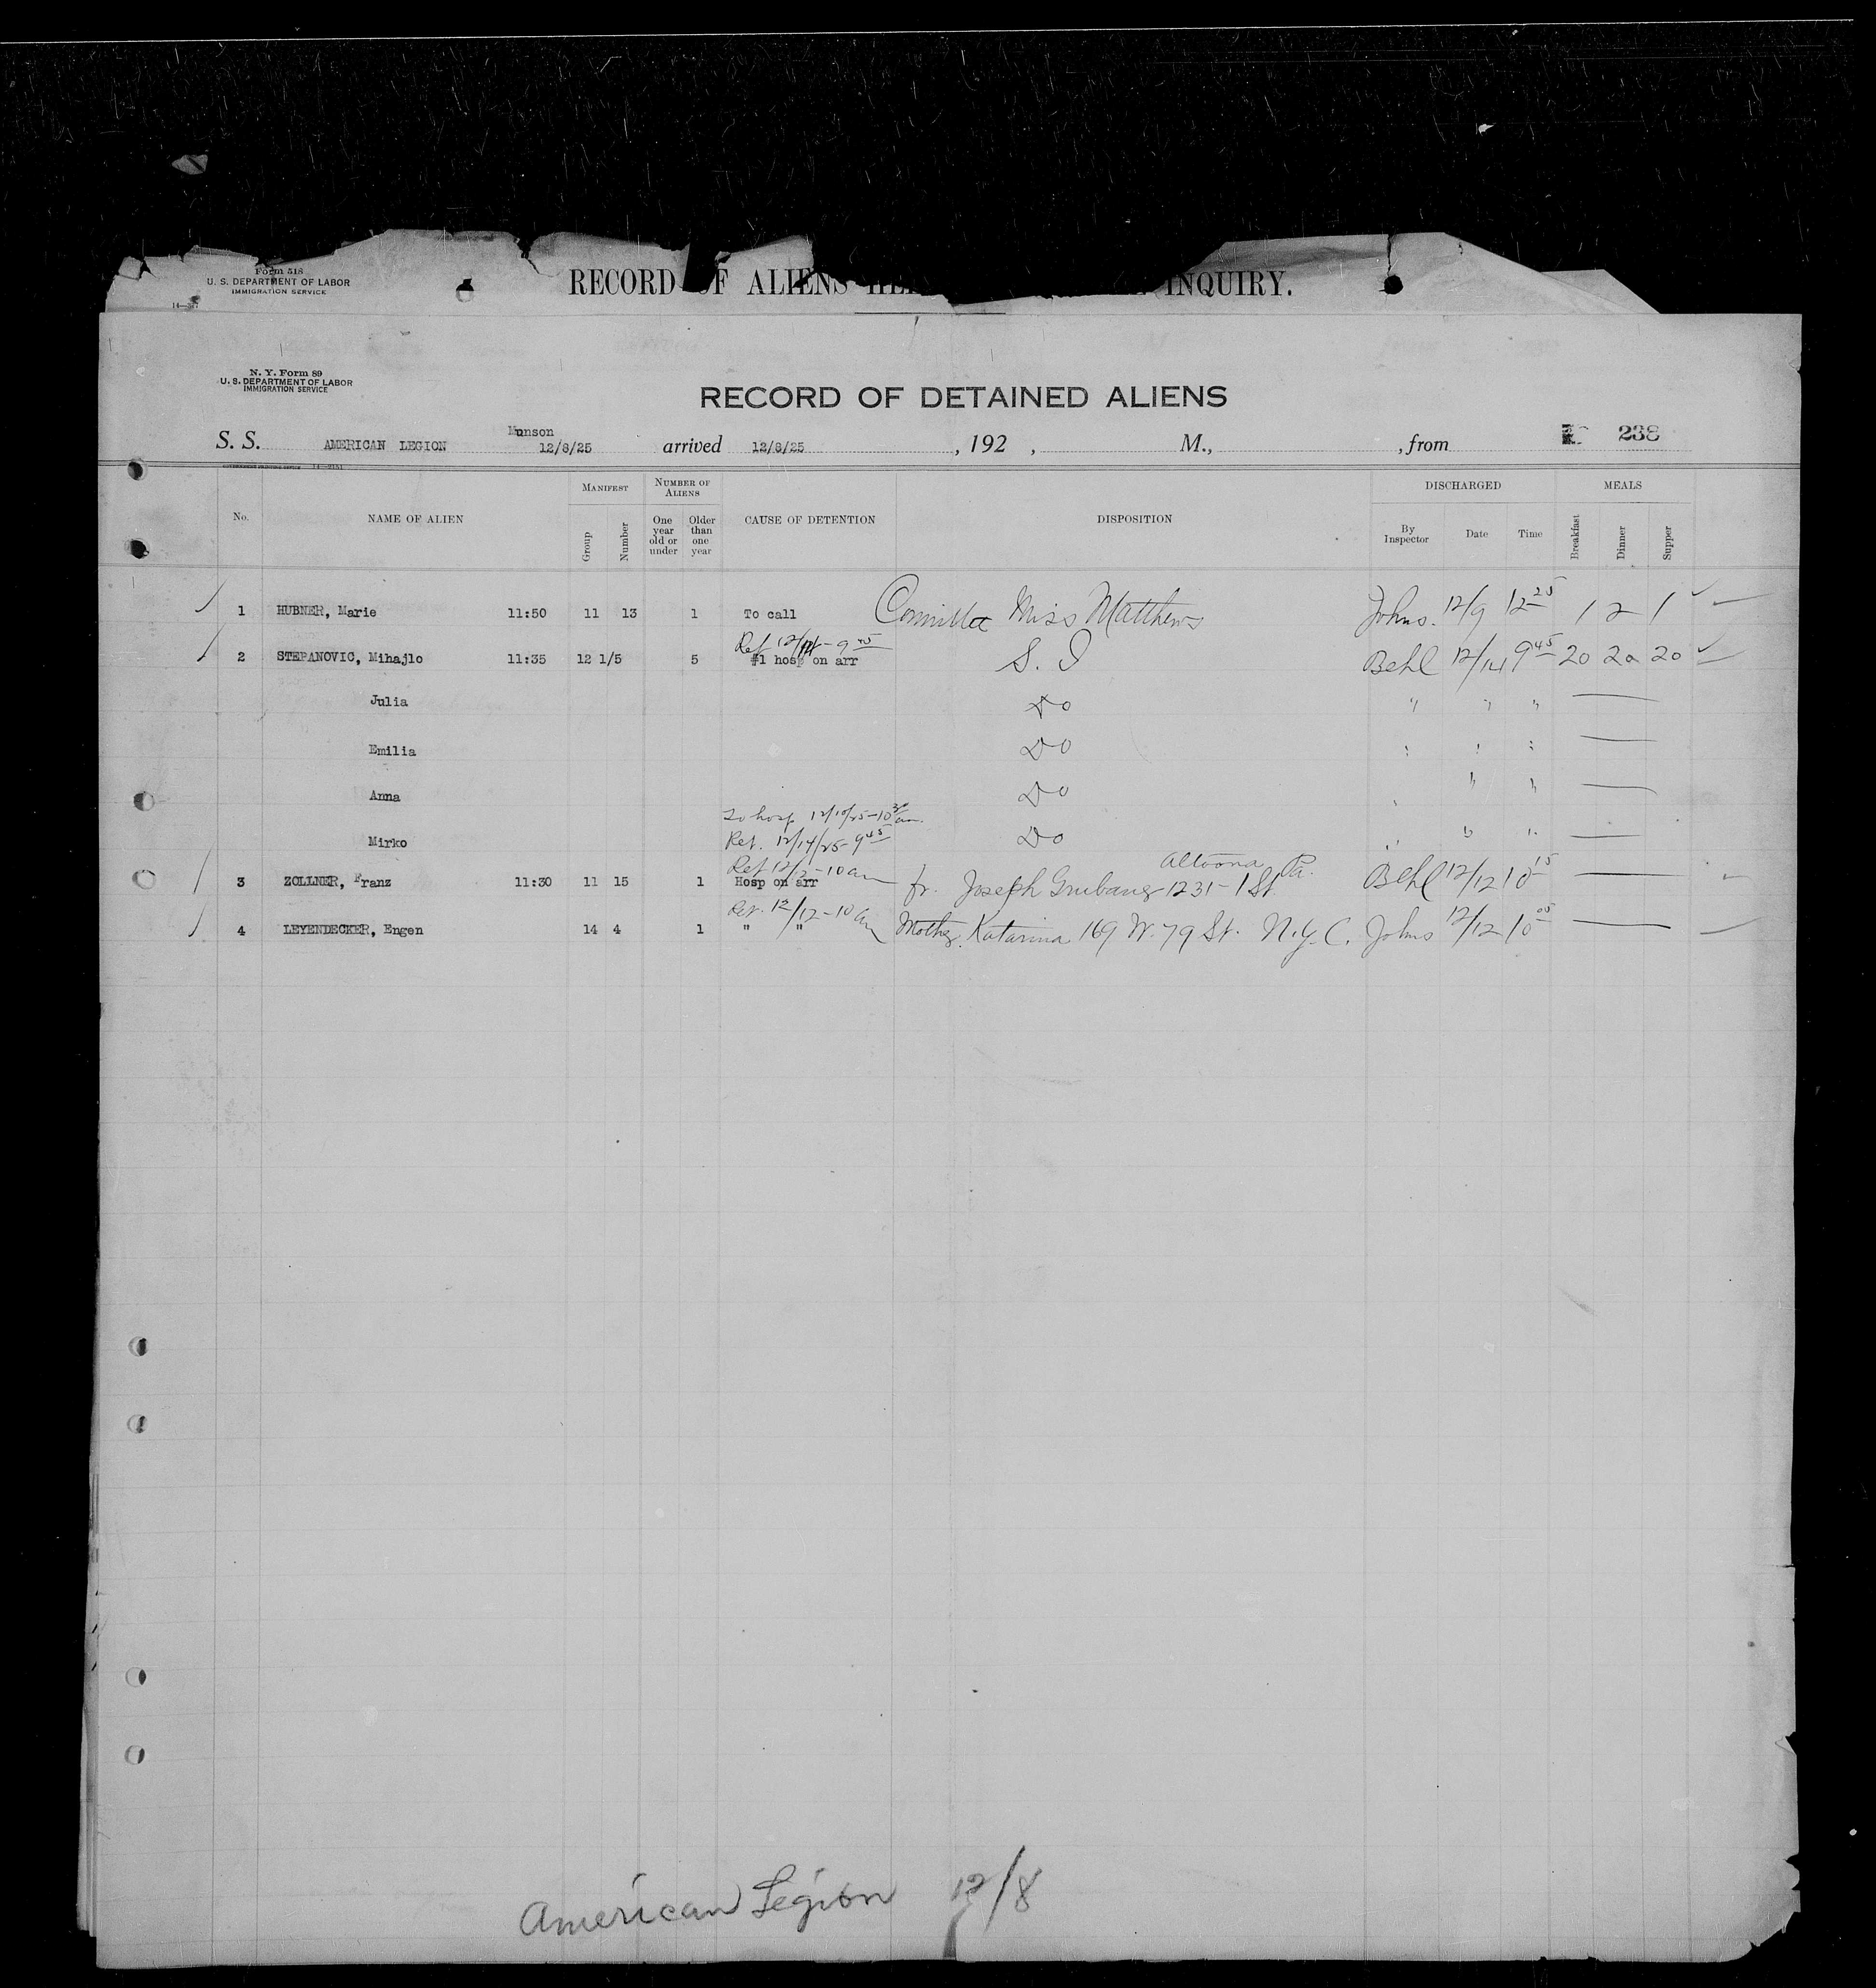 Form 518
U. S. DEPARTMENT OF LABOR
IMMIGRATION SERVICE
RECORD OF ALIENS INQUIRY.
N. Y. Form 89
U. S. DEPARTMENT OF LABOR
IMMIGRATION SERVICE
RECORD OF DETAINED ALIENS
Munson
S. S. AMERICAN LEGION 12/8/25 arrived 12/8/25 , 192 , M., , from 238
No. NAME OF ALIEN MANIFEST Group Number NUMBER OF ALIENS One year old or under Older than one year CAUSE OF DETENTION DISPOSITION DISCHARGED By Inspector Date Time MEALS Breakfast Dinner Supper
1 HUBNER, Marie 11:50 11 13 1 To call Committee Miss Matthews Johns. 12/9 12 25 1 2 1
Ret 12/14 - 9 45
2 STEPANOVIC, Mihajlo 11:35 12 1/5 5 #1 hosp on arr S. I Behl 12/14 9 45 20 20 20
Julia Do " " "
Emilia Do " " "
Anna Do " " "
To hosp 12/10/25 - 10 30 am.
Mirko Ret. 12/14/25 - 9 45 Do " " "
Ret 12/12 - 10 am Altoona Pa.
3 ZOLLNER, Franz 11:30 11 15 1 Hosp on arr fr. Joseph 1231 - 1 St Behl 12/12 10 15
Ret. 12/12 - 10 am
4 LEYENDECKER, Engen 14 4 1 " " Mother Katarina 169 W. 79 St. N.Y.C. Johns 12/12 10 05
American Legion 12/8